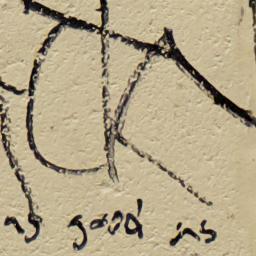 as good as